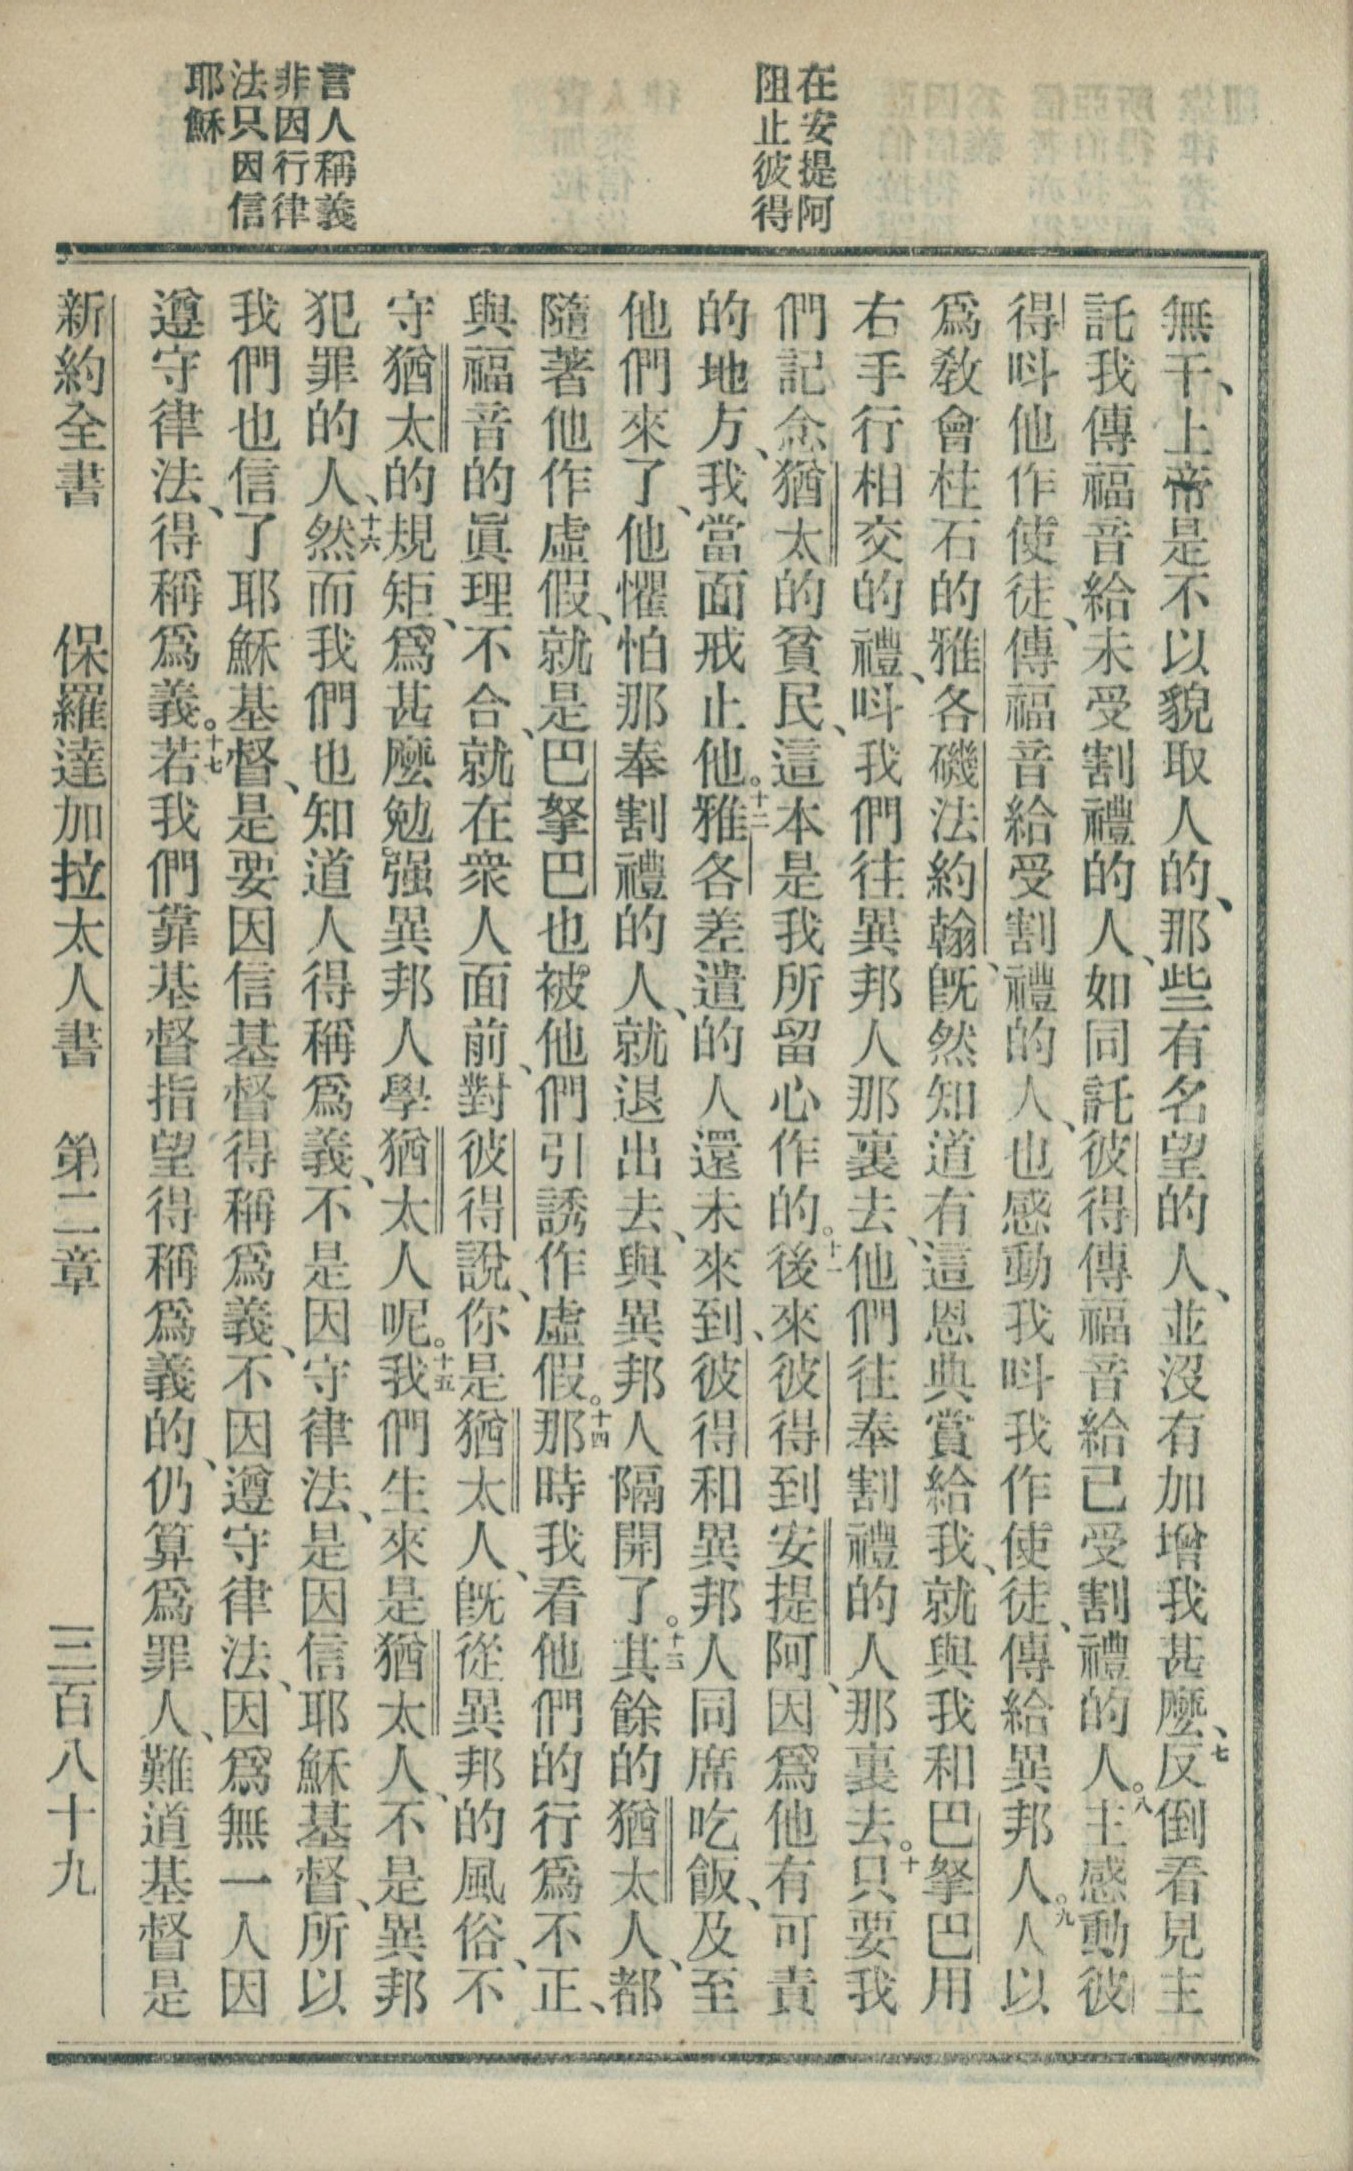 在安提阿
阻止彼得
言人稱義
非因行律
法只因信
耶穌
無干、上帝是不以貌取人的、那些有名望的人、並沒有加增我甚麼、七反倒看見主
託我傳福音給未受割禮的人、如同託彼得傳福音給已受割禮的人。八主感動彼
得呌他作使徒、傳福音給受割禮的人、也感動我呌我作使徒、傳給異邦人。九人以
爲敎會柱石的雅各磯法約翰、旣然知道有這恩典賞給我、就與我和巴拏巴用
右手行相交的禮、呌我們往異邦人那裏去、他們往奉割禮的人那裏去。十只要我
們記念猶太的貧民、這本是我所留心作的。十一後來彼得到安提阿、因爲他有可責
的地方、我當面戒止他。十二雅各差遣的人還未來到、彼得和異邦人同席吃飯、及至
他們來了、他懼怕那奉割禮的人、就退出去、與異邦人隔開了。十三其餘的猶太人、都
隨著他作虛假、就是巴拏巴也被他們引誘作虛假。十四那時我看他們的行爲不正、
與福音的眞理不合、就在衆人面前、對彼得說、你是猶太人、旣從異邦的風俗、不
守猶太的規矩、爲甚麼勉强異邦人學猶太人呢。十五我們生來是猶太人、不是異邦
犯罪的人、十六然而我們也知道人得稱爲義、不是因守律法、是因信耶穌基督、所以
我們也信了耶穌基督、是要因信基督得稱爲義、不因遵守律法、因爲無一人因
遵守律法、得稱爲義。十七若我們靠基督指望得稱爲義的、仍算爲罪人、難道基督是
新約全書　保羅達加拉太人書　第二章　三百八十九